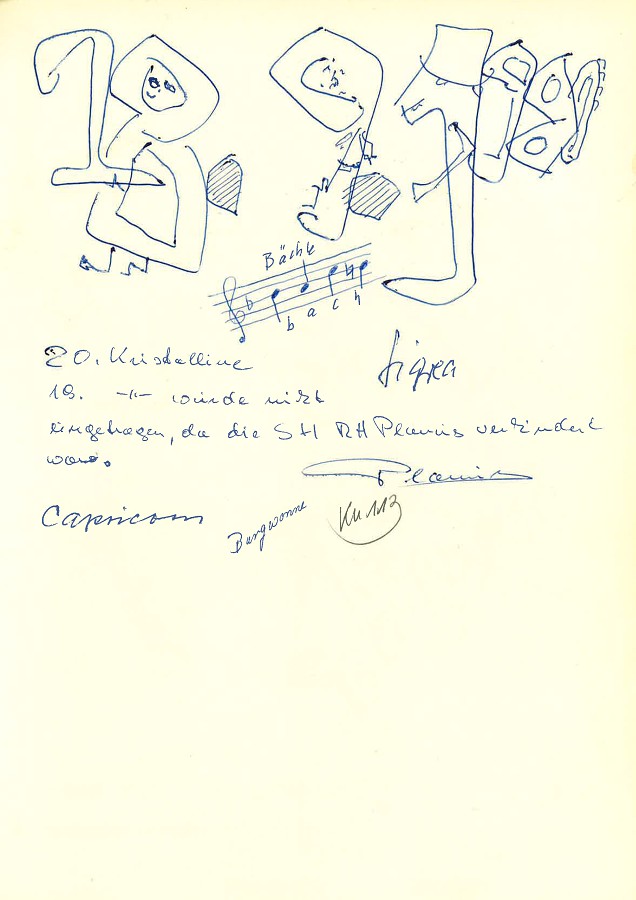 Bächle
b a c h
20. Kristalline
19. -"- wurde nicht
eingetragen, da die S H RH Planus verhindert
war.
Planus
Capricorn
Burgwonne